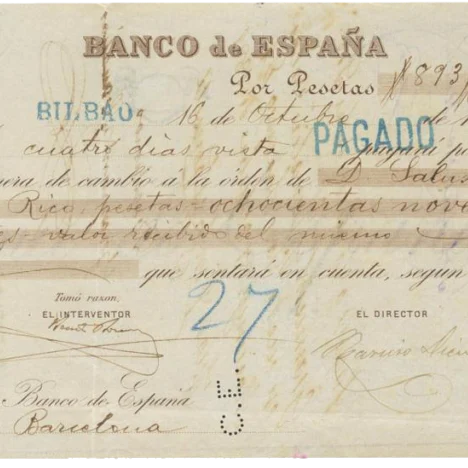 BANCO de ESPAÑA
Por Pesetas #893
BILBAO 16 de Octubre de
cuatro días vista PAGADO pagará po
era de cambio á la orden de D.
Rico pesetas ochocientas nove
valor recibido del mismo
que sentará en cuenta, según
Tomó razon,
EL INTERVENTOR
27
EL DIRECTOR
Banco de España
Barcelona
C.E.